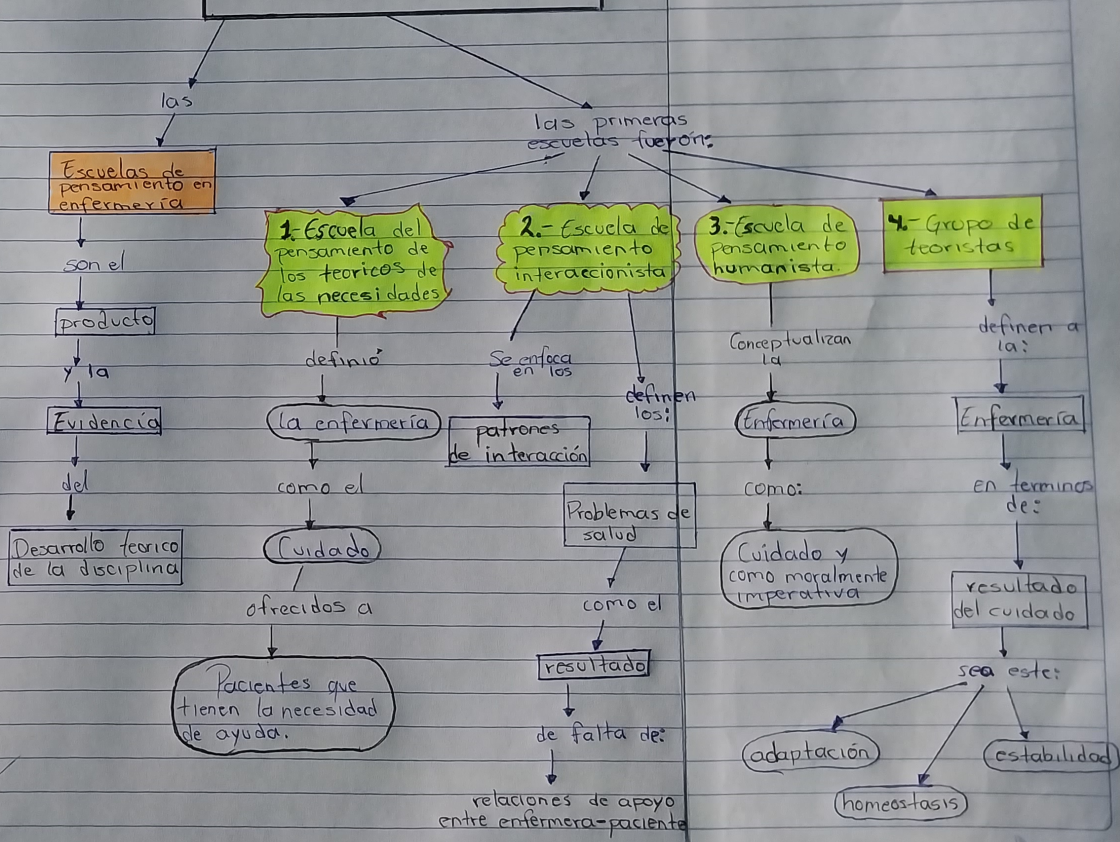 las
Escuelas de
pensamiento en
enfermería
son el
producto
y la
Evidencia
del
Desarrollo teorico
de la disciplina
las primeras
escuelas fuerón:
1. Escuela del
pensamiento de
los teoricos de
las necesidades
definió
la enfermería
como el
Cuidado
ofrecidos a
Pacientes que
tienen la necesidad
de ayuda.
2.- Escuela de
pensamiento
interaccionista
Se enfoca
en los
patrones
de interacción
definen
los:
Problemas de
salud
como el
resultado
de falta de:
relaciones de apoyo
entre enfermera-paciente
3.- Escuela de
pensamiento
humanista.
Conceptualizan
la
Enfermería
como:
Cuidado y
como moralmente
imperativa
4.- Grupo de
teoristas
definen a
la:
Enfermería
en terminos
de:
resultado
del cuidado
sea este:
adaptación
homeostasis
estabilidad